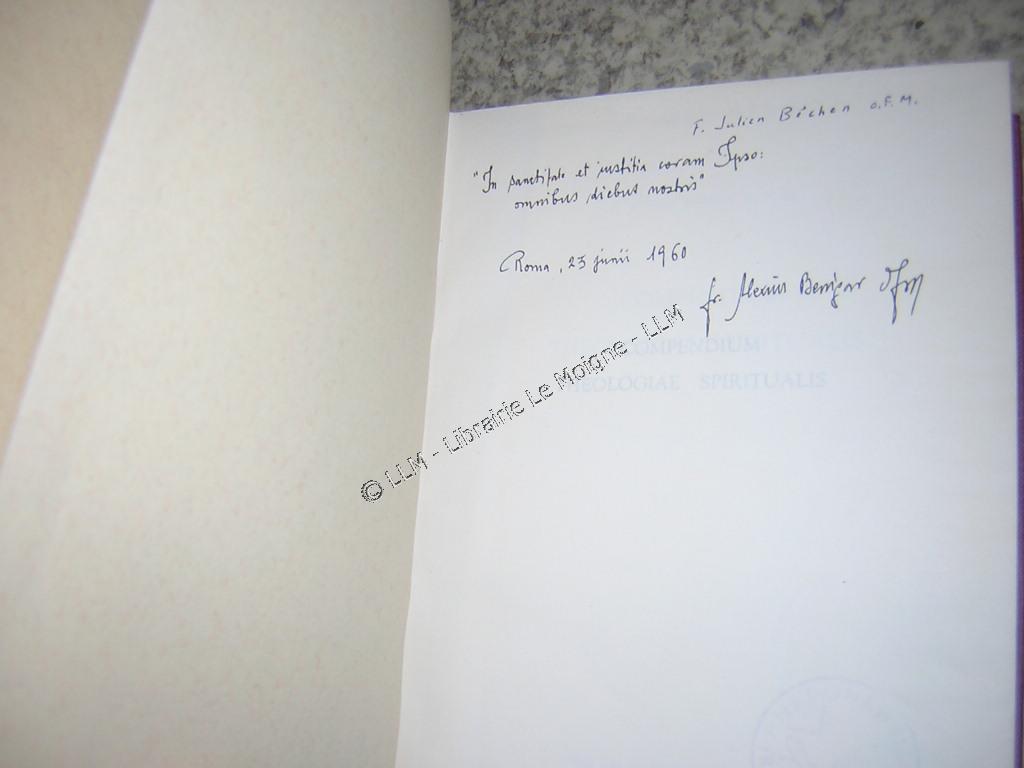 F. Julien Béchen o.F.M.
"In sanctitate et iustitia coram Ipso:
omnibus diebus nostris"
Roma, 23 junii 1960
fr. Alexius Benigar ofm
COMPENDIUM
THEOLOGIAE SPIRITUALIS
© LLM - Librairie Le Moigne - LLM